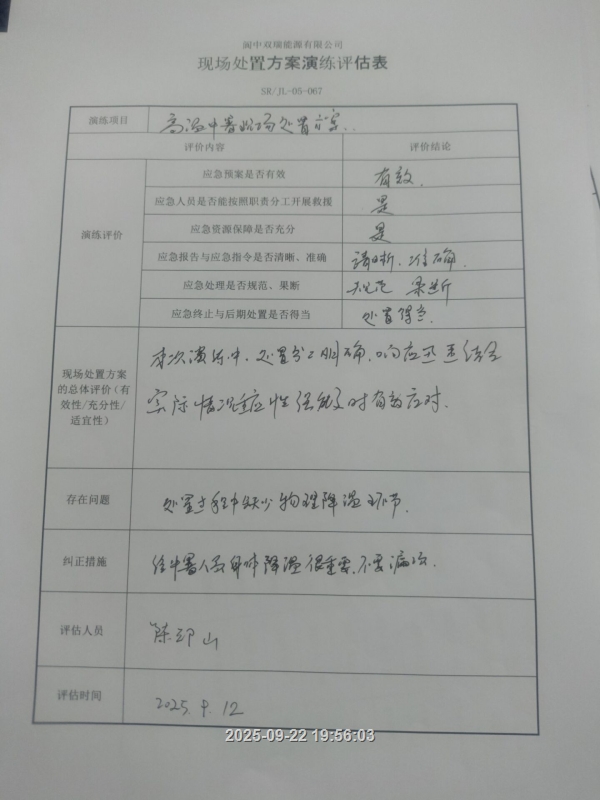 阆中双瑞能源有限公司
现场处置方案演练评估表
SR/JL-05-067
演练项目 高温中暑现场处置方案
评价内容 评价结论
演练评价
应急预案是否有效 有效
应急人员是否能按照职责分工开展救援 是
应急资源保障是否充分 是
应急报告与应急指令是否清晰、准确 清晰、准确
应急处理是否规范、果断 规范 果断
应急终止与后期处置是否得当 处置得当
现场处置方案的总体评价（有效性/充分性/适宜性）
本次演练中，处置分工明确，响应迅速结合
实际情况适应性强能及时有效应对.
存在问题 处置过程中缺少物理降温环节.
纠正措施 给中暑人员身体降温很重要,不要漏项.
评估人员 陈 山
评估时间 2025.9.12
2025-09-22 19:56:03